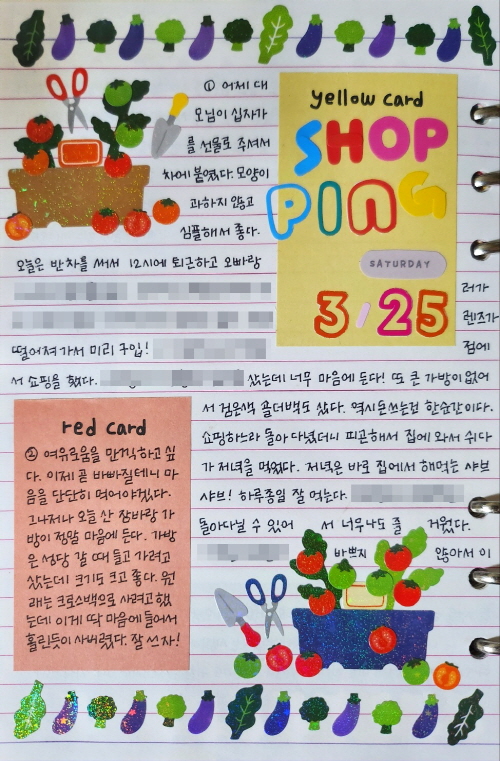 ① 어제 대
모님이 십자가
를 선물로 주셔서
차에 붙였다. 모양이
과하지 않고
심플해서 좋다.
yellow card
SHOP
PING
SATURDAY
3/25
오늘은 반차를 써서 12시에 퇴근하고 오빠랑
러가
렌즈가
떨어져가서 미리 구입!
점에
서 쇼핑을 했다. 샀는데 너무 마음에 든다! 또 큰 가방이 없어
서 검은색 숄더백도 샀다. 역시 돈쓰는건 한순간이다.
쇼핑하느라 돌아다녔더니 피곤해서 집에 와서 쉬다
가 저녁을 먹었다. 저녁은 바로 집에서 해먹는 샤브
샤브! 하루종일 잘 먹는다.
돌아다닐 수 있어서 너무나도 즐거웠다.
바쁘지 않아서 이
red card
② 여유로움을 만끽하고 싶
다. 이제 곧 바빠질테니 마
음을 단단히 먹어야겠다.
그나저나 오늘 산 잠바랑 가
방이 정말 마음에 든다. 가방
은 성당 갈 때 들고 가려고
샀는데 크기도 크고 좋다. 원
래는 크로스백으로 사려고 했
는데 이게 딱 마음에 들어서
홀린듯이 사버렸다. 잘 쓰자!